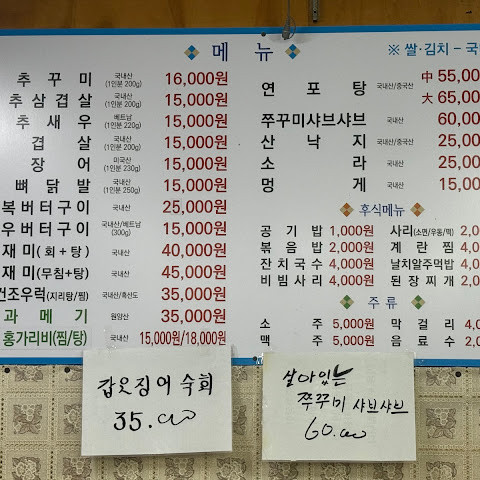 메 뉴
※ 쌀·김치 - 국
추 꾸 미 국내산 (1인분 200g) 16,000원
추 삼 겹 살 국내산 (1인분 200g) 15,000원
추 새 우 베트남 (1인분 220g) 15,000원
겹 살 국내산 (1인분 200g) 15,000원
장 어 미국산 (1인분 230g) 15,000원
뼈 닭 발 국내산 (1인분 250g) 15,000원
복 버 터 구 이 국내산 25,000원
우 버 터 구 이 국내산/베트남 (300g) 15,000원
재 미 (회+탕) 국내산 40,000원
재 미 (무침+탕) 국내산 45,000원
건조우럭(지리탕/찜) 국내산/흑산도 35,000원
과 메 기 원양산 35,000원
홍가리비(찜/탕) 국내산 15,000원/18,000원
연 포 탕 국내산/중국산 中 55,00
大 65,00
쭈꾸미샤브샤브 국내산 60,00
산 낙 지 국내산/중국산 25,00
소 라 국내산 25,00
멍 게 국내산 15,00
후식메뉴
공 기 밥 1,000원 사리(소면/우동/떡) 2,0
볶 음 밥 2,000원 계 란 찜 4,0
잔 치 국 수 4,000원 날치알주먹밥 4,0
비 빔 사 리 4,000원 된 장 찌 개 2,0
주 류
소 주 5,000원 막 걸 리 4,0
맥 주 5,000원 음 료 수 2,0
갑오징어 숙회
35.000
살아있는
쭈꾸미 샤브샤브
60.000